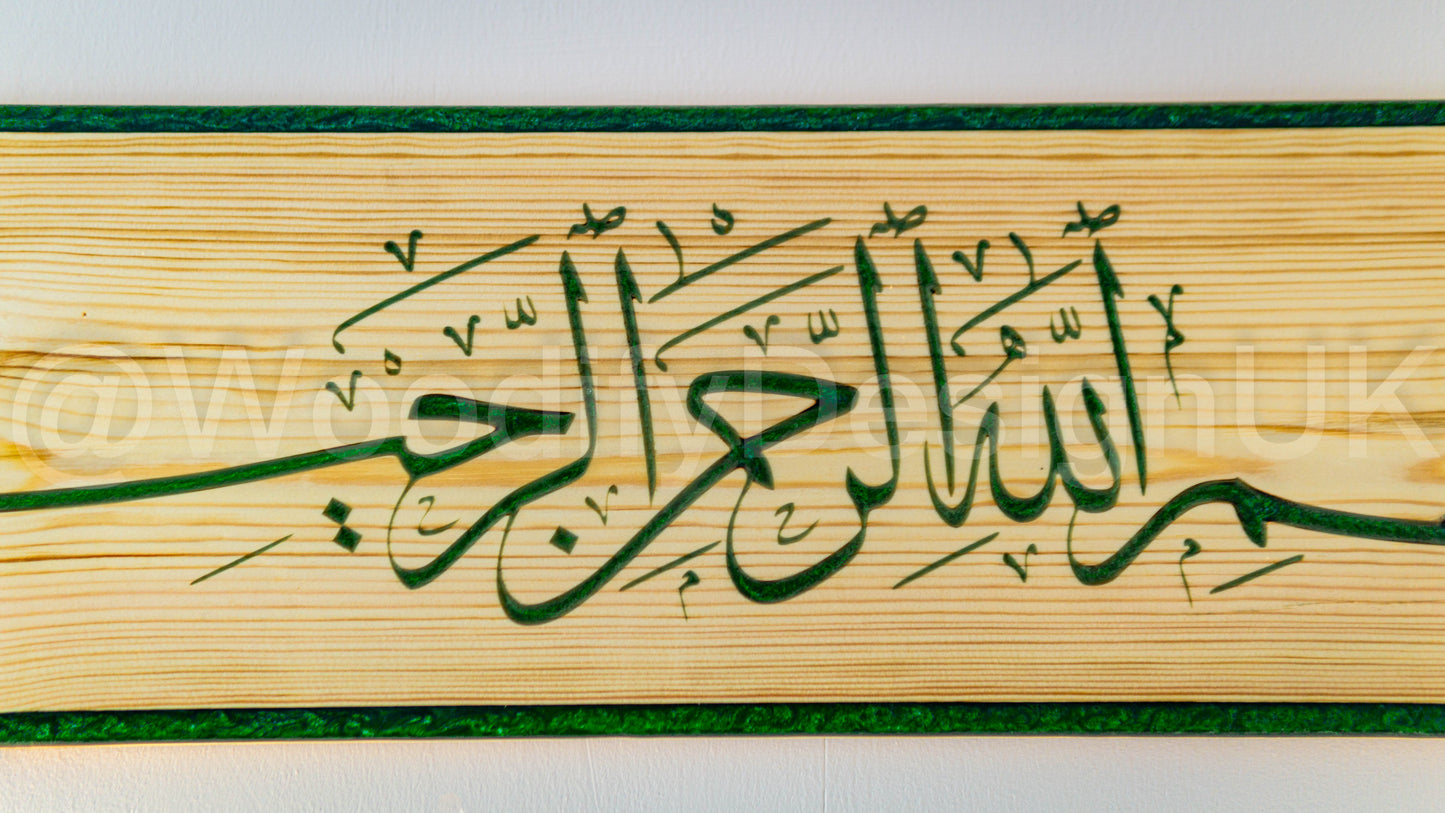 بسم الله الرحمن الرحيم
@WoodifyDesignUK